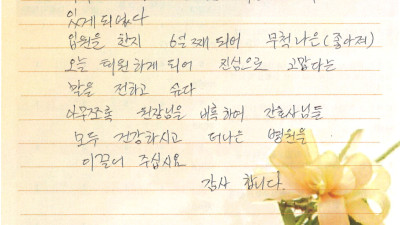 있게 되었다
입원을 한지 6일 째 되어 무척 나은(좋아져)
오늘 퇴원하게 되어 진심으로 고맙다는
말을 전하고 싶다
아무쪼록 원장님을 비롯하여 간호사님들
모두 건강하시고 더나은 병원을
이끌어 주십시요
감사 합니다.